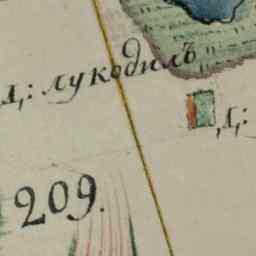 д: лукодилъ
д:
209.